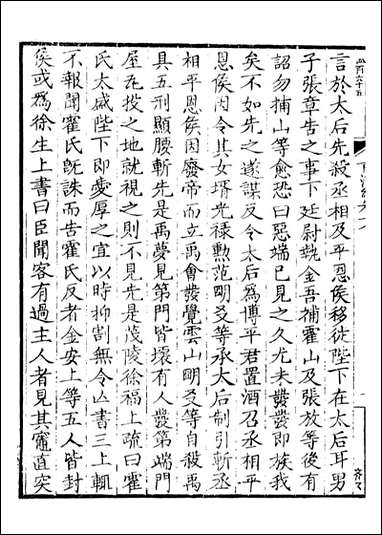 言於太后先殺丞相及平恩侯移徙陛下在太后耳男
子張章告之事下廷尉執金吾捕霍山及張放等後有
詔勿捕山等愈恐曰惡端已見之久尤未發發即族我
矣不如先之遂謀反令太后爲博平君置酒召丞相平
恩侯因令其女壻光禄勲范明友等承太后制引斬丞
相平恩侯因廢帝而立禹會發覺雲山明友等自殺禹
具五刑顯腰斬先是禹夢見第門皆壞有人發第端門
屋瓦投之地就視之則不見先是茂陵徐福上疏曰霍
氏太盛陛下即愛厚之宜以時抑割無令亾書三上輒
不報聞霍氏既誅而告霍氏反者金安上等五人皆封
侯或爲徐生上書曰臣聞客有過主人者見其竈直突